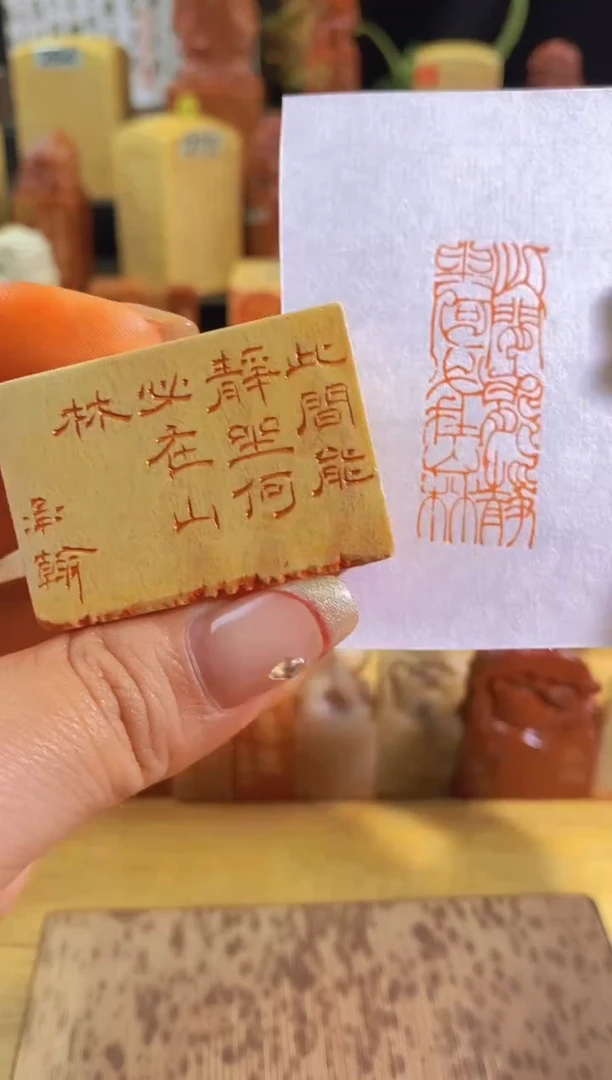 此間能
靜坐何
必在山
林
翰
此間能靜
坐何必在山林